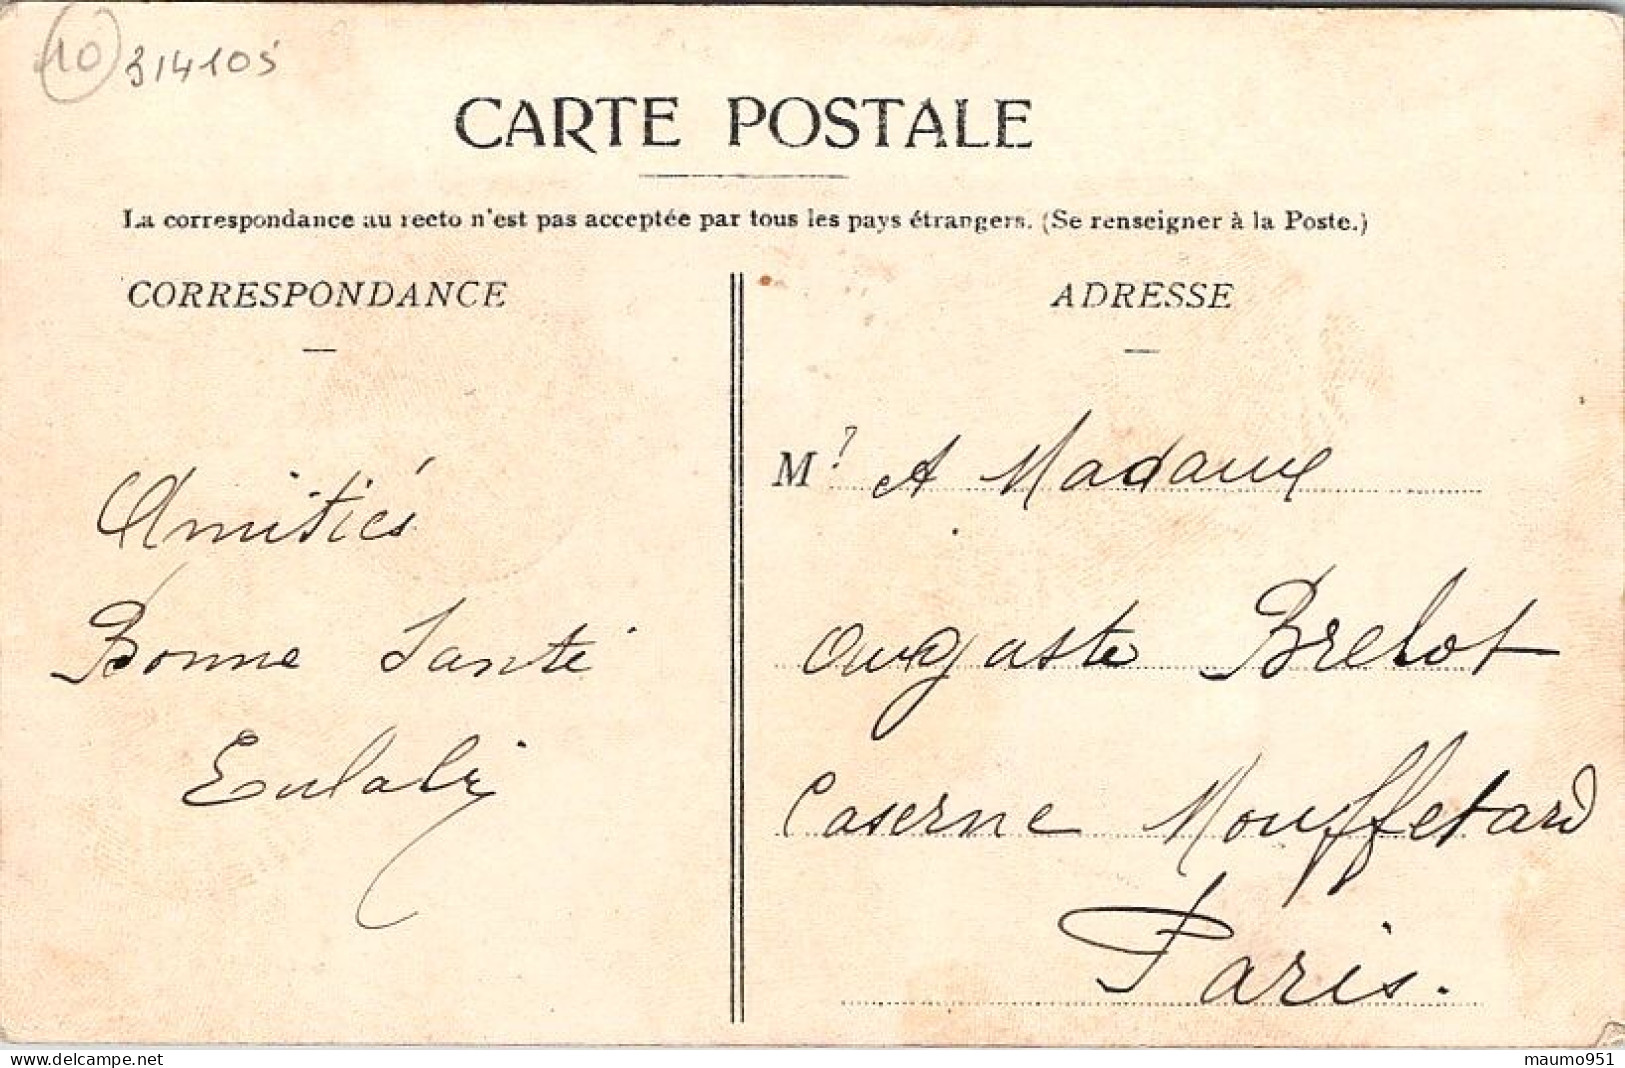 10 314105
CARTE POSTALE
La correspondance au recto n'est pas acceptée par tous les pays étrangers. (Se renseigner à la Poste.)
CORRESPONDANCE
Amitiés
Bonne Santé
Eulalie
ADRESSE
M. A Madame
Auguste Brelot
Caserne Mouffetard
Paris.
delcampe.net
maumo951